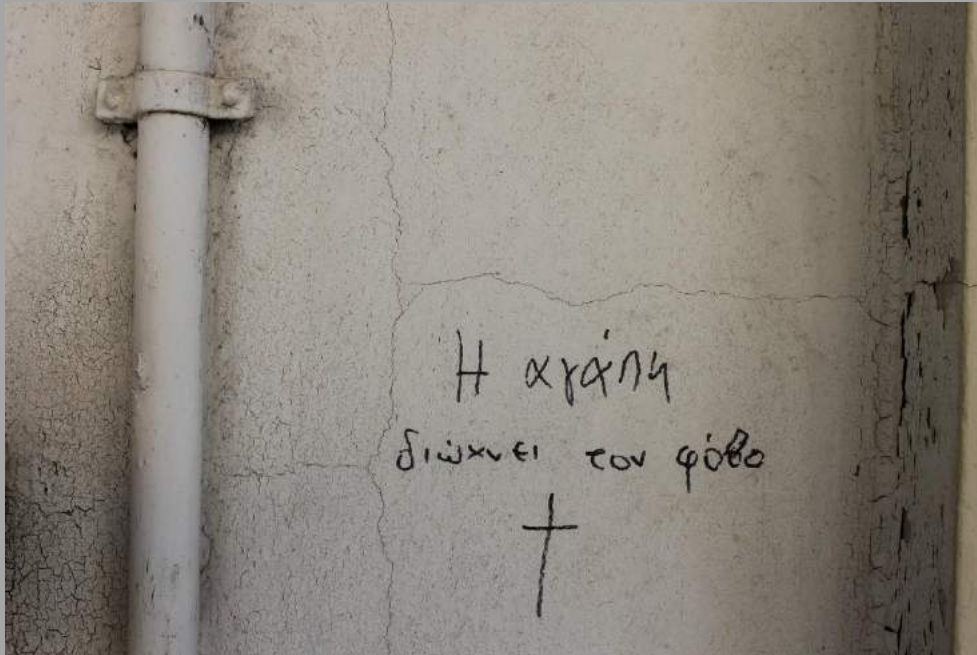 Η αγάπη
διώχνει τον φόβο